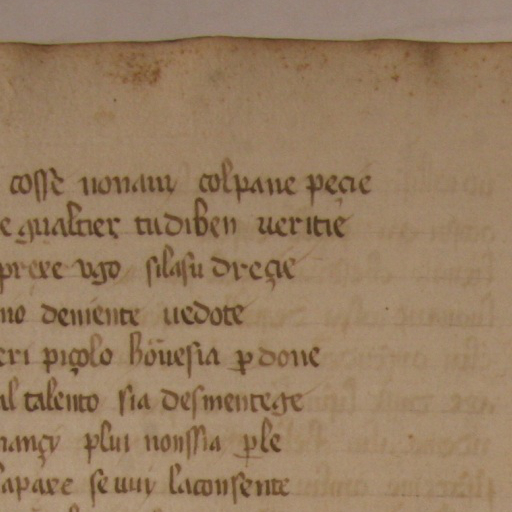 cossẽ nonauy colpane peçie
e gualtier tu diben ueritie
prexe vgo silasu dreçie
mo deniente uedote
eri piçolo bõuesia ꝑdone
al talento sia desmentege
nançy plui nonssia ꝑle
sapare se uuy laconsente